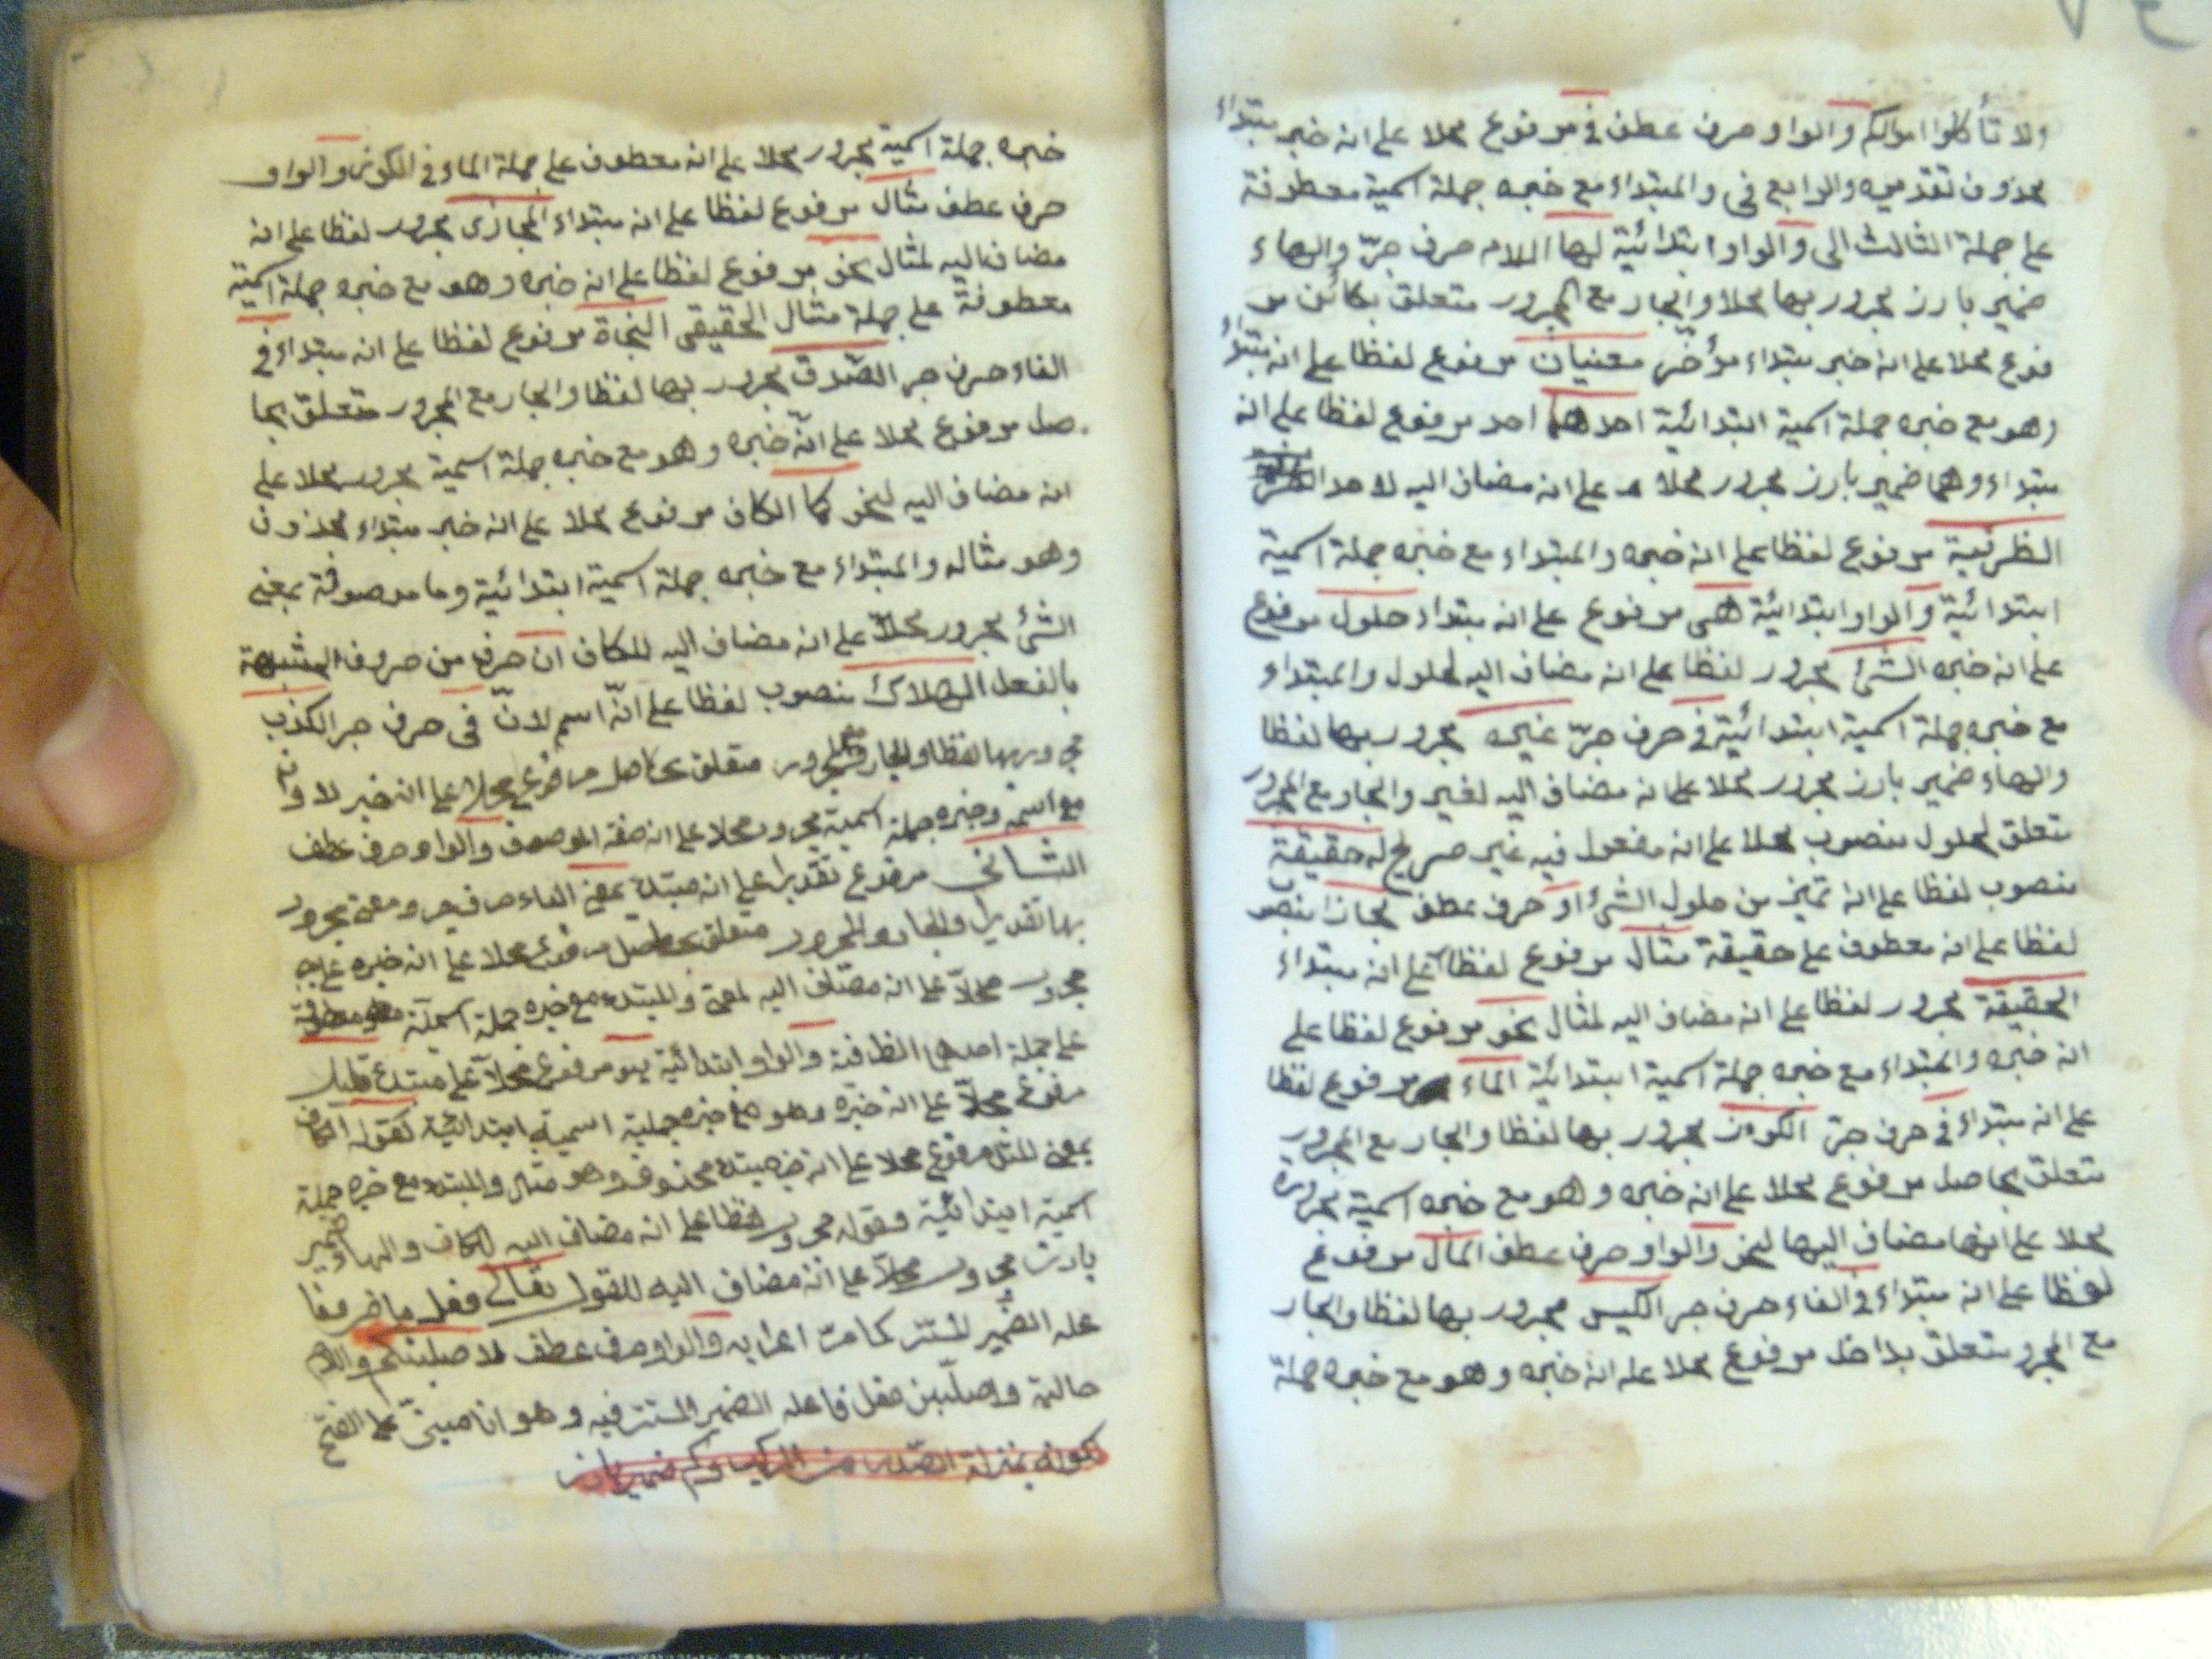 ولا تأكلوا اموالكم والواو حرف عطف في مرفوع محلا على انه خبر مبتداء
محذوف تقديره والرابع في والمبتداء مع خبره جملة اسمية معطوفة
على جملة الثالث الى والواو ابتدائية لها اللام حرف جرّ والهاء
ضمير بارز مجرور بها محلا والجار مع المجرور متعلق بكائن مر
فوع محلا على انه خبر مبتداء مؤخّر معنيان مرفوع لفظا على انه مبتداء
وهو مع خبره جملة اسمية ابتدائية احدهما احد مرفوع لفظا على انه
مبتداء وهما ضمير بارز مجرور محلا على انه مضاف اليه لاحد
الظرفية مرفوع لفظا على انه خبره والمبتداء مع خبره جملة اسمية
ابتدائية والواو ابتدائية هى مرفوع على انه مبتداء حلول مرفوع
على انه خبره الشئ مجرور لفظا على انه مضاف اليه لحلول والمبتداء
مع خبره جملة اسمية ابتدائية في حرف جرّ غيره مجرور بها لفظا
والهاء ضمير بارز مجرور محلا على انه مضاف اليه لغير والجار مع المجرور
متعلق لحلول منصوب محلا على انه مفعول فيه غير صريح له حقيقة
منصوب لفظا على انه تميز من حلول الشئ او حرف عطف مجازا منصوب
لفظا على انه معطوف على حقيقة مثال مرفوع لفظا على انه مبتداء
الحقيقة مجرور لفظا على انه مضاف اليه لمثال نحو مرفوع لفظا على
انه خبره والمبتداء مع خبره جملة اسمية ابتدائية الماء مرفوع لفظا
على انه مبتداء في حرف جرّ الكوز مجرور بها لفظا والجار مع المجرور
متعلق بحاصل مرفوع محلا على انه خبره وهو مع خبره اسمية مجرورة
محلا على انها مضاف اليها لنحو والواو حرف عطف المال مرفوع
لفظا على انه مبتداء في الفاء حرف جر الكيس مجرور بها لفظا والجار
مع المجرور متعلق بداخل مرفوع محلا على انه خبره وهو مع خبره جملة
خبره جملة اسمية مجرور محلا على انه معطوف على جملة الماء في الكوز والواو
حرف عطف مثال مرفوع لفظا على انه مبتداء المجازى مجرور لفظا على انه
مضاف اليه لمثال نحو مرفوع لفظا على انه خبره وهو مع خبره جملة اسمية
معطوفة على جملة مثال الحقيقى النجاة مرفوع لفظا على انه مبتداء في
الفاء حرف جر الصّدق مجرور بها لفظا والجار مع المجرور متعلق بحا
صل مرفوع محلا على انّه خبره وهو مع خبره جملة اسمية مجرور محلا على
انه مضاف اليه لنحو كما الكاف مرفوع محلا على انه خبر مبتداء محذوف
وهو مثاله والمبتداء مع خبره جملة اسمية ابتدائية وما موصوفة بمعنى
الشئ مجرور محلاّ على انه مضاف اليه للكاف ان حرف من حروف المشبهة
بالفعل الهلاك منصوب لفظا على انّه اسم لانّ في حرف جر الكذب
مجرور بها لفظا والجار مع المجرور متعلق بحاصل مرفوع محلا على انه خبر لانّ وانّ
مع اسمه وخبره جملة اسمية مجرور محلا على انه صفة الموصوف والواو حرف عطف
الثانى مرفوع تقديرا على انه مبتدء بمعنى الباء حرف جر ومعنى مجرور
بها تقديرا والجار والمجرور متعلق بحاصل مرفوع محلا على انه خبره على
مجرور محلاّ على انه مضاف اليه لمعنى والمبتدء مع خبره جملة اسمية معطوفة
على جملة احدهما الظرفية والواو ابتدائية هو مرفوع محلاّ على مبتدء قليل
مرفوع محلاّ على انه خبره وهو مع خبره جملة اسمية ابتدائية كقوله الكاف
بمعنى المثل مرفوع محلا على انه خبر مبتدء محذوف وهو مثاله والمبتدء مع خبره جملة
اسمية ابتدائية وقوله مجرور لفظا على انه مضاف اليه للكاف والهاء ضمير
بارز مجرور محلاّ على انه مضاف اليه للقول تعالى فعل ماض فا
عله الضمير المستتر كما مرّ اعرابه والواو حرف عطف لاصلبنكم واللام
حالية واصلّبن فعل فاعله الضمير المستتر فيه وهو انا مبنىّ على الفتح
لكونه بمنزلة الصّدر من التركيب وكم ضمير بارز